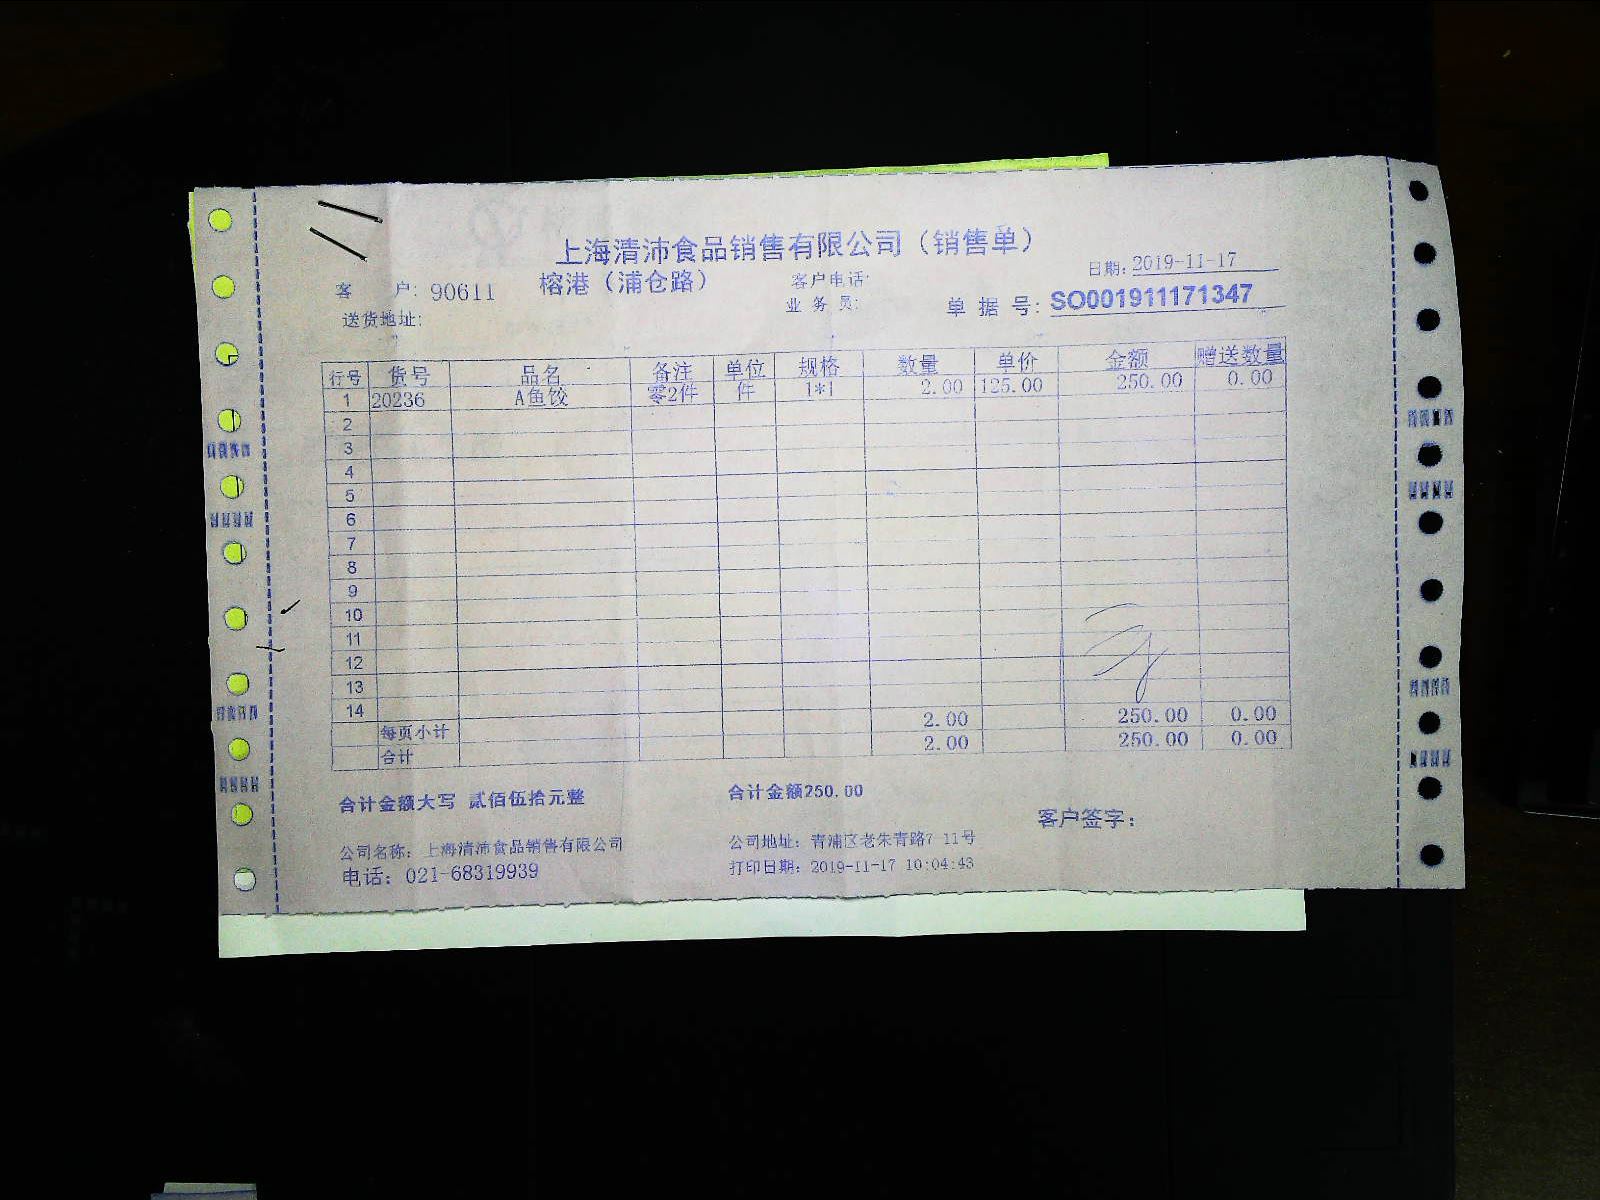 上海清沛食品销售有限公司（销售单）
日期: 2019-11-17
客 户: 90611 榕港（浦仓路） 客户电话:
业 务 员: 单 据 号: SO001911171347
送货地址:
行号 货号 品名 备注 单位 规格 数量 单价 金额 赠送数量
1 20236 A鱼饺 零2件 件 1*1 2.00 125.00 250.00 0.00
2
3
4
5
6
7
8
9
10
11
12
13
14
每页小计 2.00 250.00 0.00
合计 2.00 250.00 0.00
合计金额大写 贰佰伍拾元整 合计金额250.00
客户签字:
公司名称: 上海清沛食品销售有限公司 公司地址: 青浦区老朱青路7 11号
电话: 021-68319939 打印日期: 2019-11-17 10:04:43